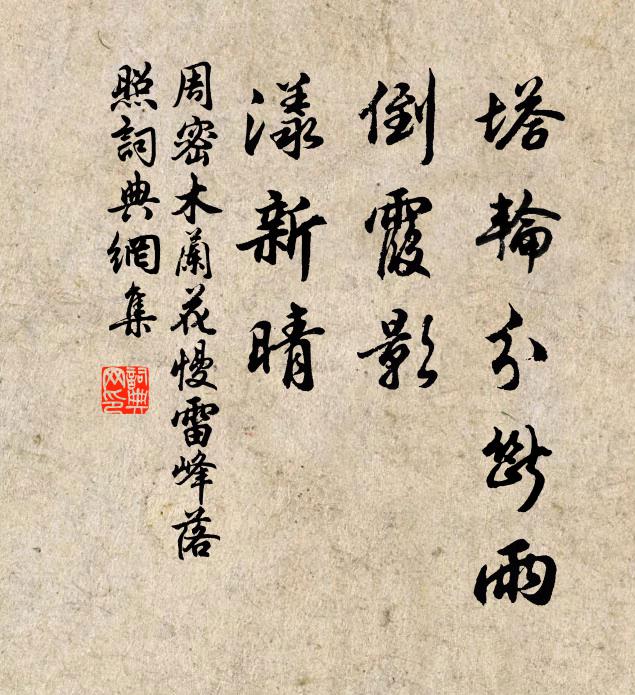 塔輪分斷雨
倒霞影
漾新晴
周密木蘭花慢雷峰落
照詞典網集
詞典網印